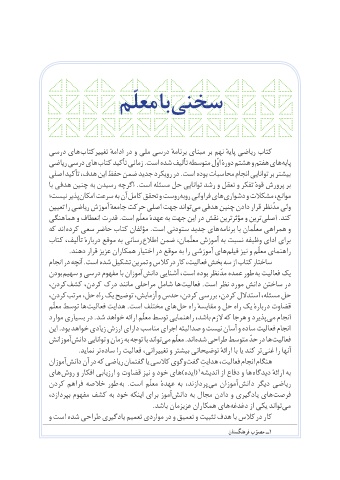 سخنی با معلّم
کتاب ریاضی پایهٔ نهم بر مبنای برنامهٔ درسی ملی و در ادامهٔ تغییر کتاب‌های درسی
پایه‌های هفتم و هشتم دورهٔ اوّل متوسطه تألیف شده است. زمانی تأکید کتاب‌های درسی ریاضی
بیشتر بر توانایی انجام محاسبات بوده است. در رویکرد جدید ضمن حفظ این هدف، تأکید اصلی
بر پرورش قوهٔ تفکر و تعقل و رشد توانایی حل مسئله است. اگرچه رسیدن به چنین هدفی با
موانع، مشکلات و دشواری‌های فراوانی روبه‌روست و تحقق کامل آن به سرعت امکان‌پذیر نیست؛
ولی مدّنظر قرار دادن چنین هدفی می‌تواند جهت اصلی حرکت جامعهٔ آموزش ریاضی را تعیین
کند. اصلی‌ترین و مؤثرترین نقش در این جهت به عهدهٔ معلّم است. قدرت انعطاف و هماهنگی
و همراهی معلّمان با برنامه‌های جدید ستودنی است. مؤلفان کتاب حاضر سعی کرده‌اند که
برای ادای وظیفه نسبت به آموزش معلّمان، ضمن اطلاع‌رسانی به موقع دربارهٔ تألیف، کتاب
راهنمای معلّم و نیز فیلم‌های آموزشی را به موقع در اختیار همکاران عزیز قرار دهند.
ساختار کتاب از سه بخش فعالیت، کار در کلاس و تمرین تشکیل شده است. آنچه در انجام
یک فعالیت به‌طور عمده مدّنظر بوده است، آشنایی دانش‌آموزان با مفهوم درسی و سهیم بودن
در ساختن دانش مورد نظر است. فعالیت‌ها شامل مراحلی مانند درک کردن، کشف کردن،
حل مسئله، استدلال کردن، بررسی کردن، حدس و آزمایش، توضیح یک راه حل، مرتب کردن،
قضاوت دربارهٔ یک راه حل و مقایسهٔ راه حل‌های مختلف است. هدایت فعالیت‌ها توسط معلّم
انجام می‌پذیرد و هرجا که لازم باشد، راهنمایی توسط معلّم ارائه خواهد شد. در بسیاری موارد
انجام فعالیت ساده و آسان نیست و صدالبته اجرای مناسب دارای ارزش زیادی خواهد بود. این
فعالیت‌ها در حد متوسط طراحی شده‌اند. معلّم می‌تواند با توجه به زمان و توانایی دانش‌آموزانش
آنها را غنی‌تر کند یا با ارائهٔ توضیحاتی بیشتر و تغییراتی، فعالیت را ساده‌تر نماید.
هنگام انجام فعالیت، هدایت گفت‌وگوی کلاسی یا گفتمان ریاضی که در آن دانش‌آموزان
به ارائهٔ دیدگاه‌ها و دفاع از اندیشه۱ (ایده)های خود و نیز قضاوت و ارزیابی افکار و روش‌های
ریاضی دیگر دانش‌آموزان می‌پردازند، به عهدهٔ معلّم است. به‌طور خلاصه فراهم کردن
فرصت‌های یادگیری و دادن مجال به دانش‌آموز برای اینکه خود به کشف مفهوم بپردازد،
می‌تواند یکی از دغدغه‌های همکاران عزیزمان باشد.
کار در کلاس با هدف تثبیت و تعمیق و در مواردی تعمیم یادگیری طراحی شده است و
۱ـ مصوّب فرهنگستان